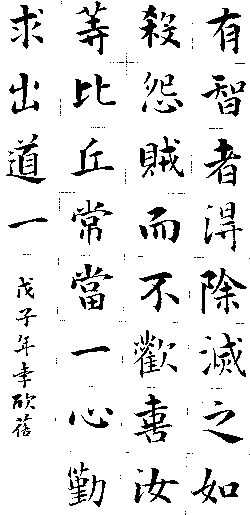 有智者得除滅之如
殺怨賊而不歡喜汝
等比丘常當一心勤
求出道一
戊子年李欣蓓